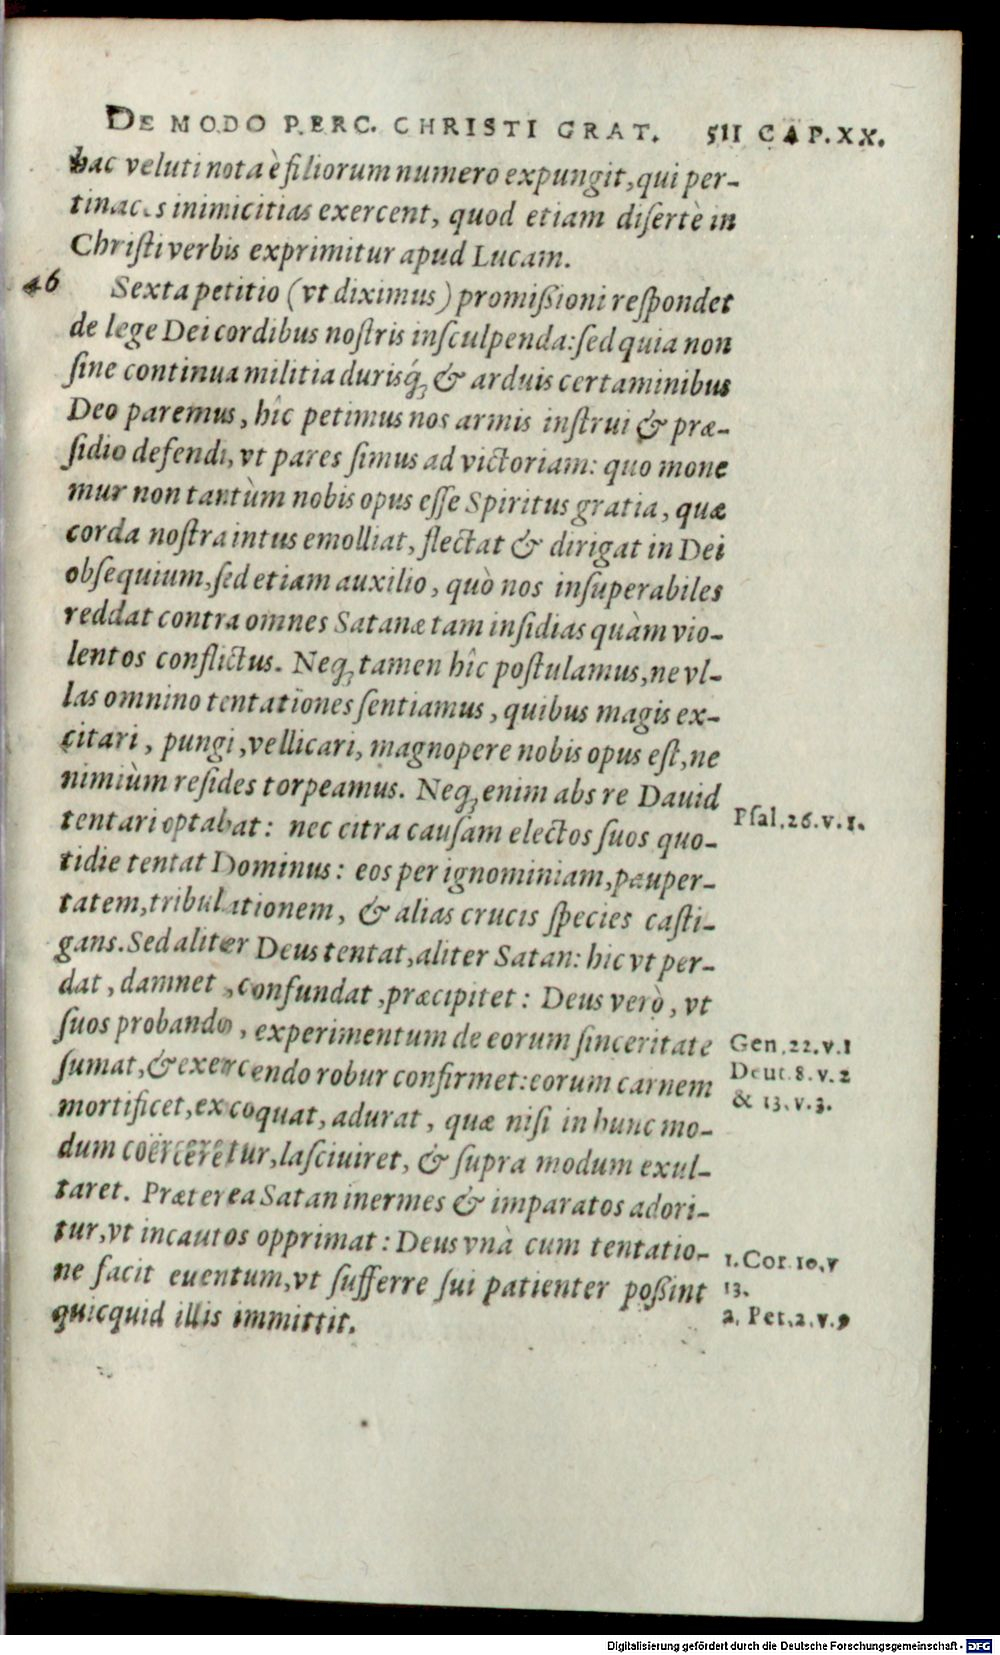 DE MODO PERC. CHRISTI GRAT. 511 CAP. XX.
hac veluti nota è filiorum numero expungit, qui per-
tinaces inimicitias exercent, quod etiam disertè in
Christi verbis exprimitur apud Lucam.
46 Sexta petitio (vt diximus) promißioni respondet
de lege Dei cordibus nostris insculpenda: sed quia non
sine continua militia durisq́; & arduis certaminibus
Deo paremus, hîc petimus nos armis instrui & præ-
sidio defendi, vt pares simus ad victoriam: quo mone
mur non tantùm nobis opus esse Spiritus gratia, quæ
corda nostra intus emolliat, flectat & dirigat in Dei
obsequium, sed etiam auxilio, quò nos insuperabiles
reddat contra omnes Satanæ tam insidias quàm vio-
lentos conflictus. Neq; tamen hîc postulamus, ne vl-
las omnino tentationes sentiamus, quibus magis ex-
citari, pungi, vellicari, magnopere nobis opus est, ne
nimiùm resides torpeamus. Neq; enim abs re Dauid
tentari optabat: nec citra causam electos suos quo-
Psal. 26. v. 1.
tidie tentat Dominus: eos per ignominiam, pauper-
tatem, tribulationem, & alias crucis species casti-
gans. Sed aliter Deus tentat, aliter Satan: hic vt per-
dat, damnet, confundat, præcipitet: Deus verò, vt
suos probando, experimentum de eorum sinceritate
Gen. 22. v. 1
sumat, & exercendo robur confirmet: eorum carnem
Deut. 8. v. 2
mortificet, excoquat, adurat, quæ nisi in hunc mo-
& 13. v. 3.
dum coërceretur, lasciuiret, & supra modum exul-
taret. Præterea Satan inermes & imparatos adori-
tur, vt incautos opprimat: Deus vnà cum tentatio-
1. Cor 10. v
ne facit euentum, vt sufferre sui patienter poßint
13.
quicquid illis immittit.
2. Pet. 2. v. 9
Digitalisierung gefördert durch die Deutsche Forschungsgemeinschaft - DFG